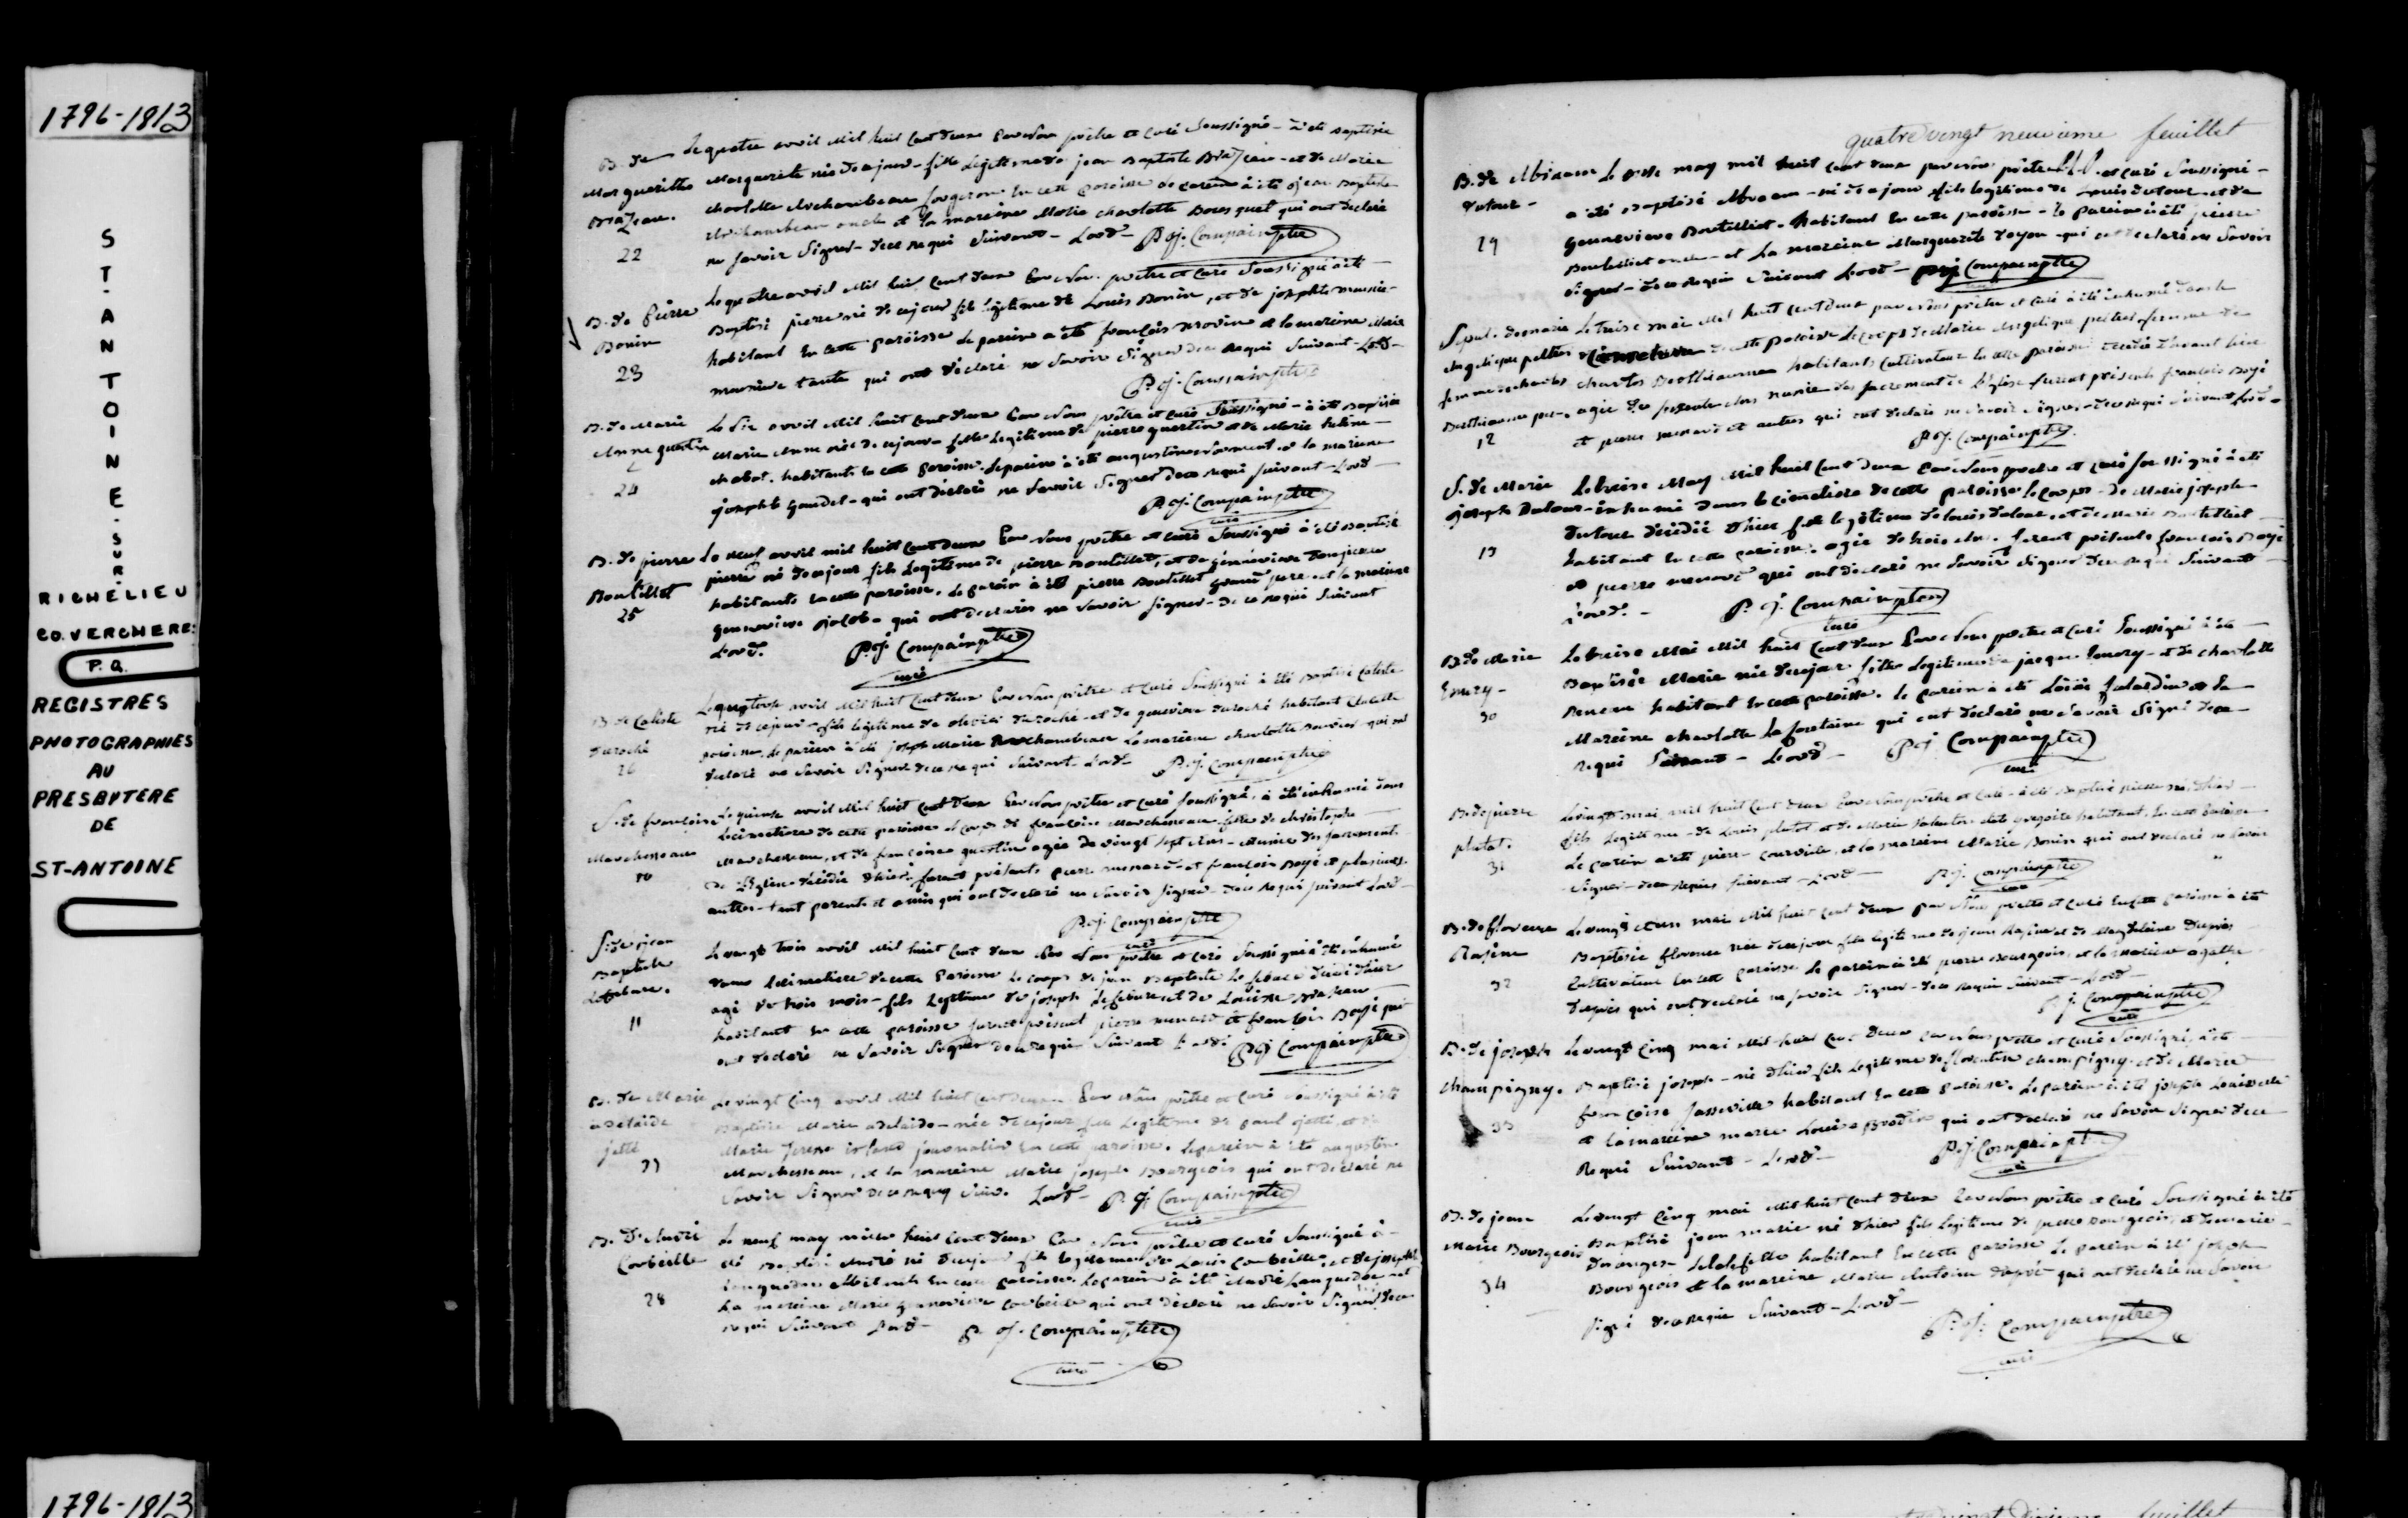 1796-1813
ST-ANTOINE-SUR-
RICHELIEU
CO. VERCHERES
P.Q.
REGISTRES
PHOTOGRAPHIÉS
AU
PRESBYTERE
DE
ST-ANTOINE
B. de
Margueritte
Brazeau.
22
Le quatre avril mil huit cent deux par nous prêtre et curé soussigné - a été baptisée
Marguerite née de ce jour - fille legitime de jean Baptiste Brazeau - et de Marie
charlotte Archambeau forgeron en cette paroisse le parein à été jean Baptiste
Archambeau oncle et la mareine Marie charlotte Bousquet qui ont declaré
ne savoir signer - de ce requi suivant - L'ord - P. J. Compain ptre
B. de Pierre
Bonin
23
Le quatre avril mil huit cent deux par nous prêtre et curé soussigné à été
Baptisé pierre né de ce jour fils légitime de Louis Bonin, et de josephte
habitant en cette paroisse le parein a été françois et la mareine Marie
tante qui ont déclaré ne savoir signer de ce requi suivant - L'ord -
P. J. Compain ptre
B. de Marie
Anne guertin
24
Le six avril mil huit cent deux par nous prêtre et curé soussigné - à été baptisée
Marie Anne née de ce jour fille legitime de pierre guertin et de Marie
chabot. habitants en cette paroisse. le parein à été augustin et la mareine
josephte gaudet - qui ont déclaré ne savoir signer de ce requi suivant - L'ord -
P. J. Compain ptre
curé
B. de pierre
Boutillet
25
Le neuf avril mil huit cent deux par nous prêtre et curé soussigné à été baptisé
pierre né de ce jour fils legitime de pierre Boutillet, et de géneviève
habitants en cette paroisse. le parein à été pierre Boutillet grand pere et la mareine
Genevieve - qui ont declarés ne savoir signer - de ce requi suivant
L'ord. P. J. Compain ptre
curé
B. de Caliste
Duroché
26
Le quatorze avril mil huit cent deux par nous prêtre et curé soussigné à été baptisé Caliste
né de ce jour - fils legitime de olivier duroché - et de genevieve duroché habitant en cette
paroisse. le parein à été joseph Marie Archambeau la mareine charlotte Bouvier - qui ont
declaré ne savoir signer de ce requi suivant - L'ord - P. J. Compain ptre
S. de françoise
Marchesseau
10
Le quinze avril mil huit cent deux par nous prêtre et curé soussigné, à été inhumé dans
le cimetiere de cette paroisse le corps de françoise Marchesseau fille de christophe
Marchesseau, et de françoise guertin agée de vingt sept ans - munie des sacrements
de l'Eglise décédée d'hier. furent présents pierre menard et françois Boyé et plusieurs
autres - tant parents et amis qui ont declaré ne savoir signer de ce requi suivant L'ord -
P. J. Compain ptre
curé
S. de jean
Baptiste
Lefebure.
11
Le vingt trois avril mil huit cent deux par nous prêtre et curé soussigné à été inhumé
dans le cimetiere de cette Paroisse le corps de jean Baptiste Lefebure décédé d'hier
agé de trois mois - fils legitime de joseph Lefebure et de Louise Brazeau
habitant en cette paroisse furent présent pierre menard et françois Boyé qui
ont déclaré ne savoir signer de ce requi suivant L'ord. P. J. Compain ptre
B. de Marie
adelaide
jetté
27
Le vingt cinq avril mil huit cent deux Par nous prêtre et curé soussigné à été
Baptisée Marie adelaide - née de ce jour fille legitime de paul jetté, et de
Marie journalier en cette paroisse. le parein à été augustin
Marchesseau, et la mareine Marie josephe Bourgeois qui ont déclaré ne
savoir signer de ce requi suiv. L'ord - P. J. Compain ptre
curé
B. d'André
Corbeille
28
Le neuf may mille huit cent deux par nous prêtre et curé soussigné à
été baptisé André né de ce jour fils legitime de Louis Corbeille, et de josephte
Languedoc habitants en cette paroisse. le parein à été André Languedoc et
la mareine Marie genevieve corbeille qui ont déclaré ne savoir signer de ce
requi suivant L'ord - P. J. Compain ptre
curé
quatre vingt neuvieme feuillet
B. de Abraam
Dutour -
29
Le onze may mil huit cent deux par nous prêtre et curé soussigné -
a été baptisé Abraam - né de ce jour fils legitime de Louis Dutour - et de
Genevieve Boutilliet - habitant en cette paroisse - le parein à été pierre
Boutilliet oncle - et la mareine Marguerite - qui ont declaré ne savoir
signer - de ce requi suivant L'ord - P. J. Compain ptre
Sepul. de marie
Angelique peltier
femme de charles
Berthieaume
12
Le treize mai mil huit cent deux par nous prêtre et curé à été inhumé dans le
cimetiere de cette paroisse le corps de Marie Angelique peltier femme de
charles Berthieaume habitants cultivateur en cette paroisse decédée d'avant hier
agée de soixante ans munie des sacrement de l'Eglise furent présents françois Boyé
et pierre menard et autres qui ont declaré ne savoir signer de ce requi suivant L'ord -
P. J. Compain ptre
S. de Marie
joseph Dutour
13
Le treize May mil huit cent deux par nous prêtre et curé soussigné à été
inhumé dans le cimetiere de cette paroisse le corps - de Marie josephe
Dutour décédée d'hier fille legitime de louis dutour, et de Marie Boutilliet
habitant en cette paroisse. agée de trois ans. furent présents françois Boyé
et pierre menard qui ont declaré ne savoir signer de ce requi suivant
L'ord. - P. J. Compain ptre
curé
B. de Marie
Emery -
30
Le treize Mai mil huit cent deux par nous prêtre et curé soussigné à été
Baptisée Marie née de ce jour fille legitime de jacque Emery - et de charlotte
habitant en cette paroisse. le parein à été Louis Jalardin et la
Mareine charlotte la fontaine qui ont declaré ne savoir signé de ce
requi suivant - L'ord - P. J. Compain ptre
curé
B. de pierre
plutot.
31
Le vingt mai mil huit cent deux par nous prêtre et curé - à été baptisé pierre né d'hier -
fils legitime - de Louis plutot et de Marie habitant. en cette paroisse
Le parein a été pierre courville, et la mareine Marie Bonin qui ont declaré ne savoir
signer - de ce requi suivant - L'ord - P. J. Compain ptre
curé
B. de florence
Rasine
32
Le vingt et un mai mil huit cent deux par nous prêtre et curé en cette paroisse à été
Baptisée florence née de ce jour fille legitime de jean Rasine et de Magdeleine Dupré
cultivateur en cette paroisse le parein à été pierre Bourgeois, et la mareine agathe
Dupré qui ont declaré ne savoir signer - de ce requi suivant - L'ord -
P. J. Compain ptre
curé
B. de joseph
champigny.
33
Le vingt cinq mai mil huit cent deux par nous prêtre et curé soussigné, à été
Baptisé joseph - né d'hier fils legitime de florentin champigny, et de Marie
françoise Jasseville habitant en cette paroisse. le parein à été joseph
et la mareine marie Louise Brodeur qui ont declaré ne savoir signer de ce
requi suivant - L'ord - P. J. Compain ptre
curé
B. de jean
Marie Bourgeois
34
Le vingt cinq mai mil huit cent deux par nous prêtre et curé soussigné à été
Baptisé jean marie né d'hier fils legitime de pierre Bourgeois, et de marie
habitant en cette paroisse le parein à été joseph
Bourgeois et la mareine Marie Antoine Dupré qui ont declaré ne savoir
signé de ce requi suivant - L'ord -
P. J. Compain ptre
curé
1796-1813
feuillet